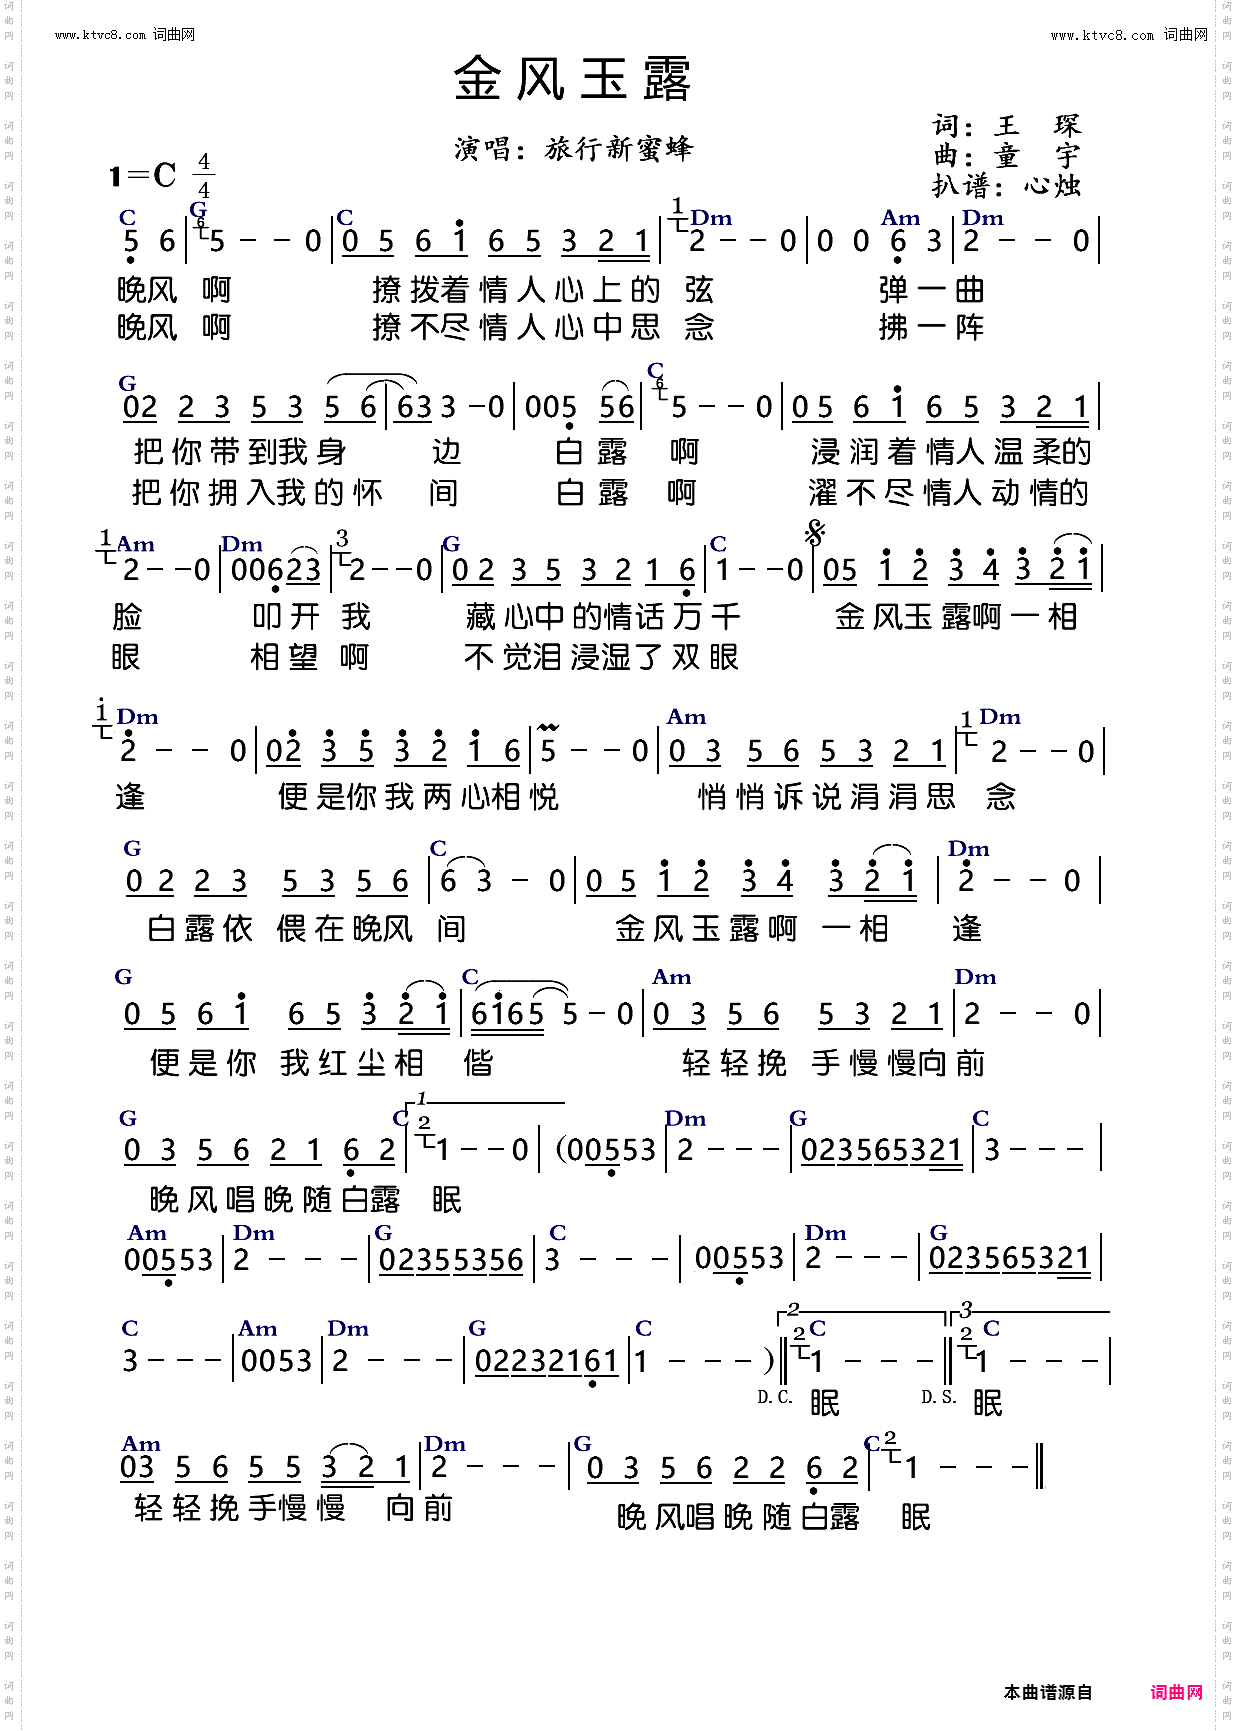 www.ktvc8.com 词曲网
www.ktvc8.com 词曲网
金风玉露
演唱：旅行新蜜蜂
词：王 琛
曲：童 宇
扒谱：心烛
1=C 4/4
C G C Dm Am Dm
5 6 | 6 5 - - 0 | 0 5 6 1 6 5 3 2 1 | 1 2 - - 0 | 0 0 6 3 | 2 - - 0 |
晚风 啊 撩拨着情人心上的 弦 弹一曲
晚风 啊 撩不尽情人心中思 念 拂一阵
G C
02 2 3 5 3 5 6 | 63 3 - 0 | 005 56 | 6 5 - - 0 | 05 6 1 6 5 3 2 1 |
把你带到我身 边 白露 啊 浸润着情人温柔的
把你拥入我的怀 间 白露 啊 濯不尽情人动情的
Am Dm G C
1 2 - - 0 | 00623 | 3 2 - - 0 | 02 3 5 3 2 1 6 | 1 - - 0 | 05 1 2 3 4 3 2 1 |
脸 叩开 我 藏心中的情话万千 金风玉露啊一相
眼 相望 啊 不觉泪浸湿了双眼
Dm Am Dm
1 2 - - 0 | 02 3 5 3 2 1 6 | 5 - - 0 | 0 3 5 6 5 3 2 1 | 1 2 - - 0 |
逢 便是你我两心相悦 悄悄诉说涓涓思 念
G C Dm
0 2 2 3 5 3 5 6 | 6 3 - 0 | 0 5 1 2 3 4 3 2 1 | 2 - - 0 |
白露依 偎在晚风 间 金风玉露啊 一相 逢
G C Am Dm
0 5 6 1 6 5 3 2 1 | 6165 5 - 0 | 0 3 5 6 5 3 2 1 | 2 - - 0 |
便是你 我红尘相 偕 轻轻挽 手慢慢向前
G C 1 Dm G C
0 3 5 6 2 1 6 2 | 2 1 - - 0 | (00553 | 2 - - - | 023565321 | 3 - - - |
晚风唱晚随白露 眠
Am Dm G C Dm G
00553 | 2 - - - | 02355356 | 3 - - - | 00553 | 2 - - - | 023565321 |
C Am Dm G C 2 C 3 C
3 - - - | 0053 | 2 - - - | 02232161 | 1 - - - ) || 2 1 - - - || 2 1 - - - |
D.C. 眠 D.S. 眠
Am Dm G C
03 5 6 5 5 3 2 1 | 2 - - - | 0 3 5 6 2 2 6 2 | 2 1 - - - ||
轻轻挽手慢慢 向前 晚风唱晚随白露 眠
本曲谱源自 词曲网